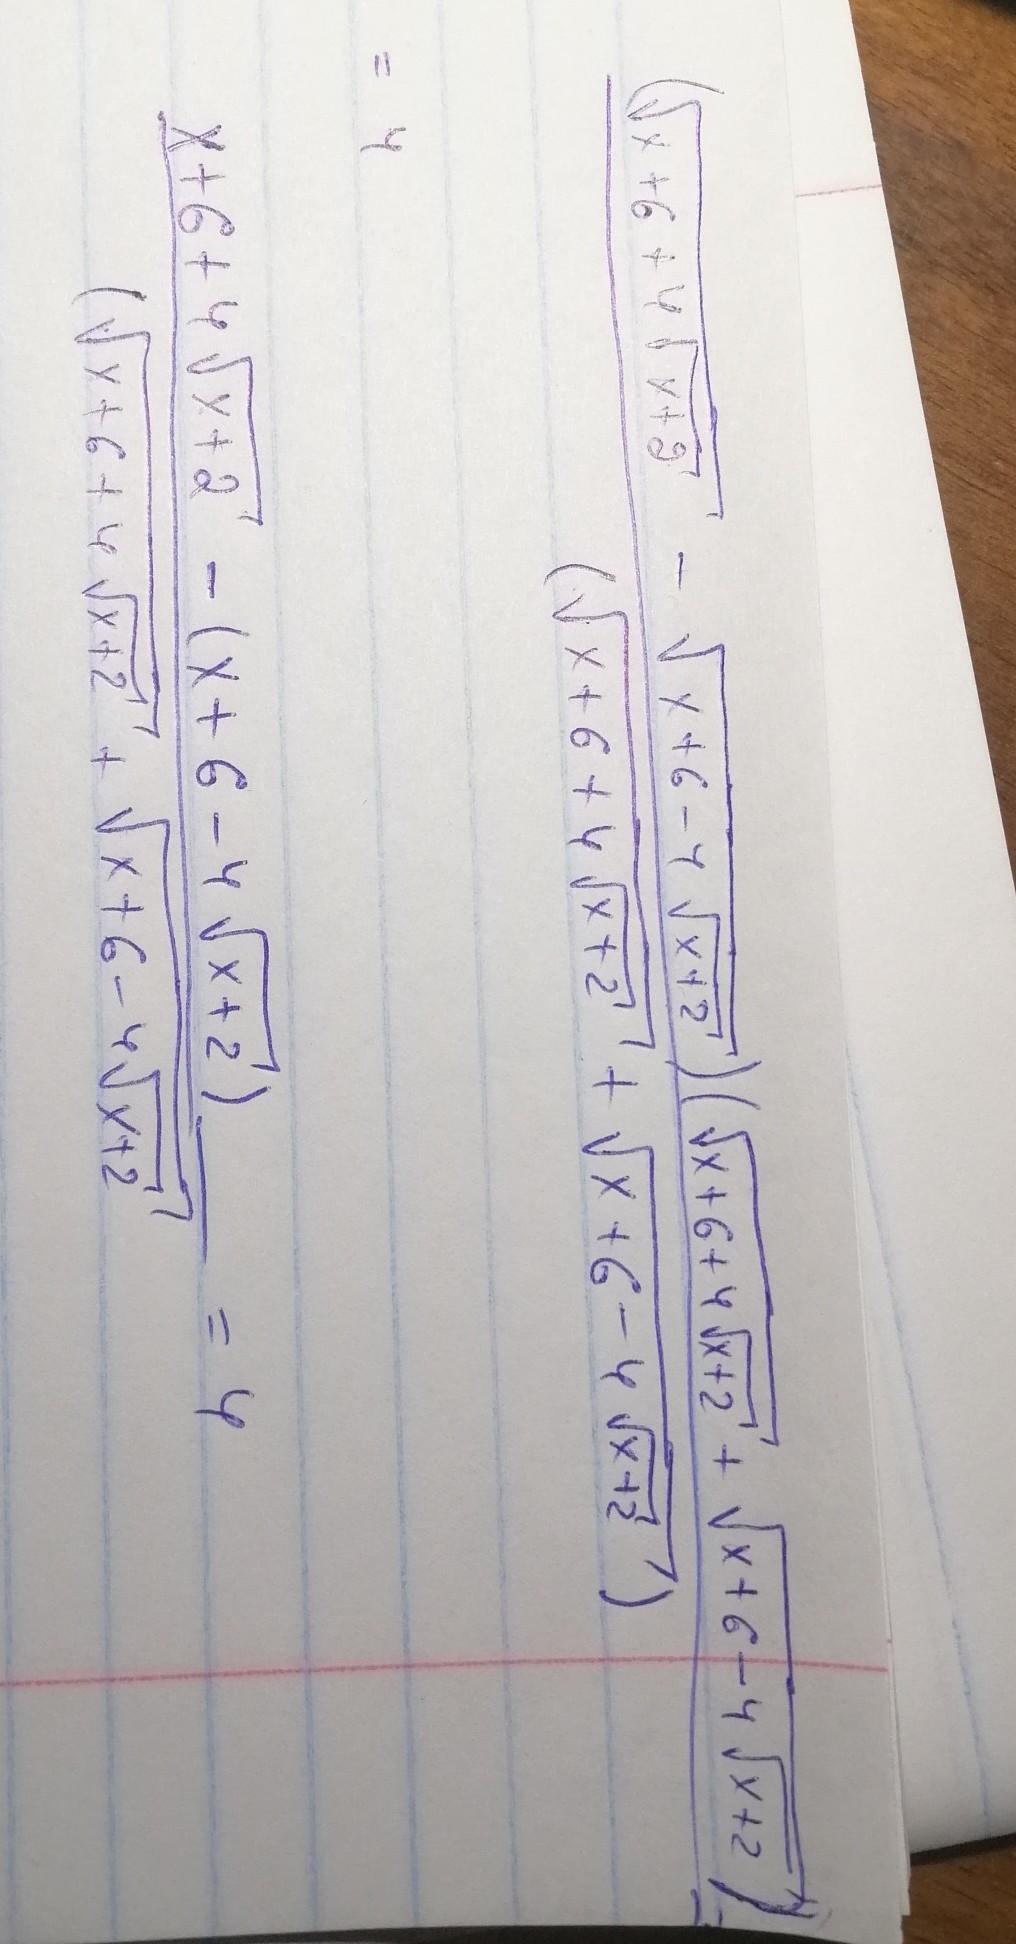 (√(x+6+4√(x+2)) - √(x+6-4√(x+2)))(√(x+6+4√(x+2)) + √(x+6-4√(x+2)))
(√(x+6+4√(x+2)) + √(x+6-4√(x+2)))
= 4
x+6+4√(x+2) - (x+6-4√(x+2)) = 4
(√(x+6+4√(x+2)) + √(x+6-4√(x+2))